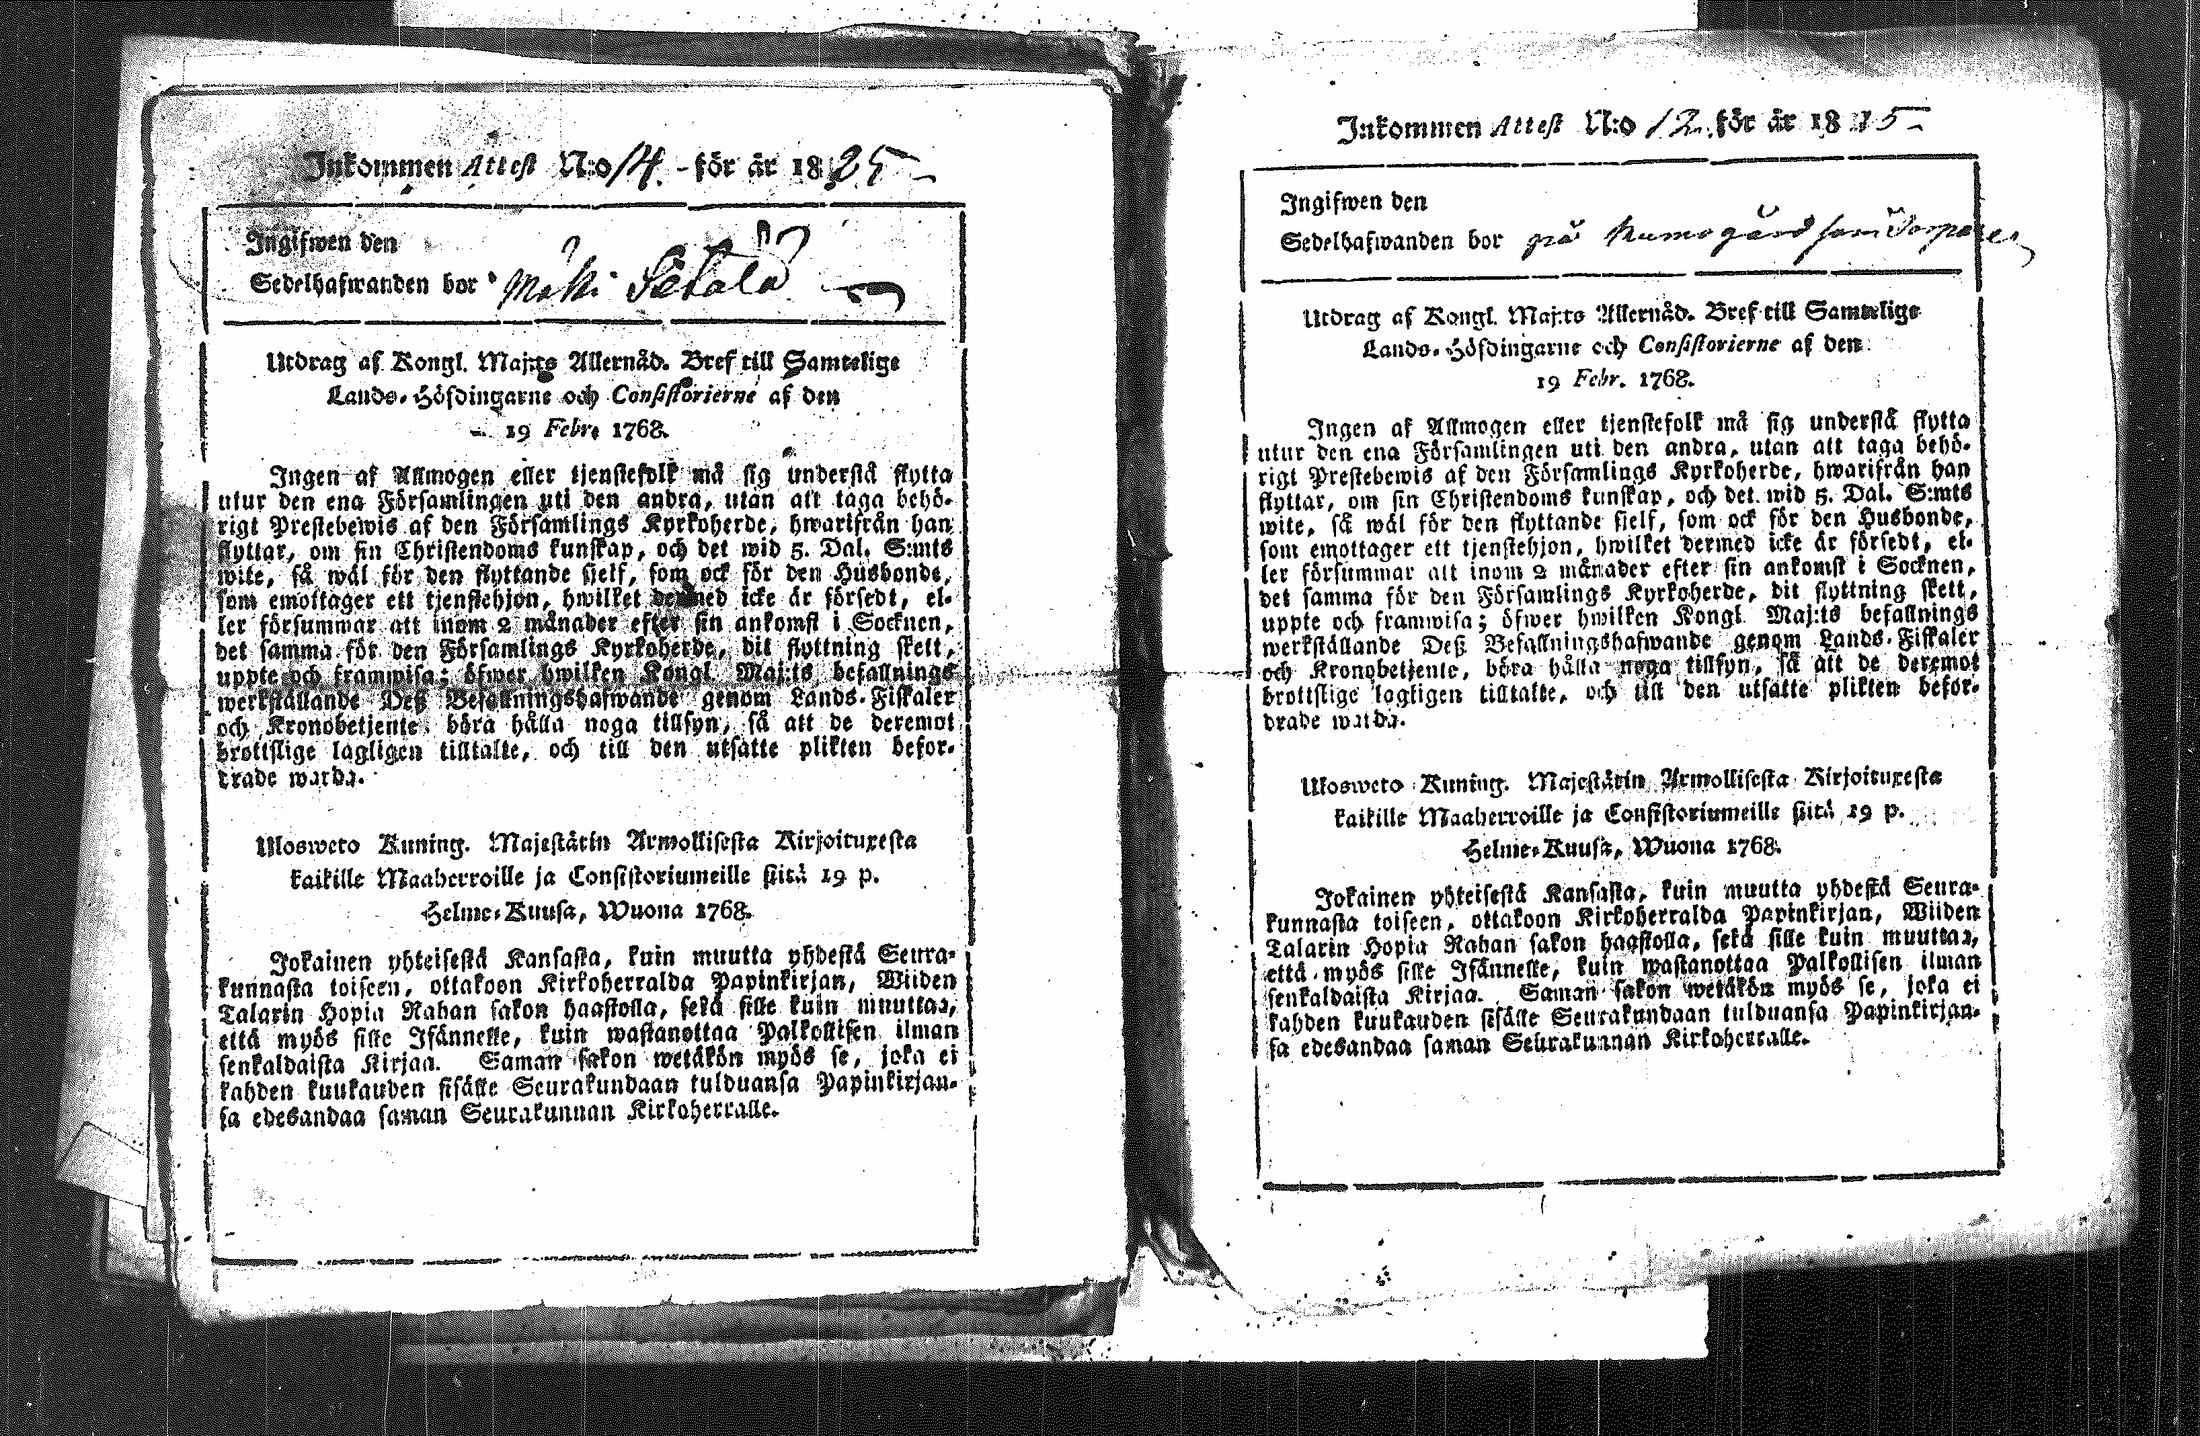 Inkommen Attest N:o 14. - för år 1825
Ingifwen den
Sedelhafwanden bor Matti Setälä
Utdrag af Kongl. Maj:ts Allernåd. Bref till Samtelige
Lands-Höfdingarne och Consistorierne af den
19 Febr. 1768.
Ingen af Allmogen eller tjenstefolk må sig understå flytta
utur den ena Församlingen uti den andra, utan att taga behö-
rigt Prestebewis af den Församlings Kyrkoherde, hwarifrån han
flyttar, om sin Christendoms kunskap, och det wid 5. Dal. S:mts
wite, så wäl för den flyttande sielf, som ock för den Husbonde,
som emottager ett tjenstehjon, hwilket dermed icke är försedt, el-
ler försummar att inom 2 månader efter sin ankomst i Socknen,
det samma för den Församlings Kyrkoherde, dit flyttning skett,
uppte och framwisa; öfwer hwilken Kongl. Maj:ts befallnings
werkställande Deß Befallningshafwande genom Lands-Fiskaler
och Kronobetjente, böra hålla noga tillsyn, så att de deremot
brottslige lagligen tilltalte, och till den utsatte plikten befor-
drade warda.
Ulosweto Kuning. Majestätin Armollisesta Kirjoituxesta
kaikille Maaherroille ja Consistoriumeille siitä 19 p.
Helme-Kuusa, Wuona 1768.
Jokainen yhteisestä Kansasta, kuin muutta yhdestä Seura-
kunnasta toiseen, ottakoon Kirkoherralda Papinkirjan, Wiiden
Talarin Hopia Rahan sakon haastolla, sekä sille kuin muuttaa,
että myös sille Isännelle, kuin wastanottaa Palkollisen ilman
senkaldaista Kirjaa. Saman sakon wetäkön myös se, joka ei
kahden kuukauden sisälle Seurakundaan tulduansa Papinkirjan-
sa edesandaa saman Seurakunnan Kirkoherralle.
Inkommen Attest N:o 12. för år 1815
Ingifwen den
Sedelhafwanden bor på Kumogård som
Utdrag af Kongl. Maj:ts Allernåd. Bref till Samtelige
Lands-Höfdingarne och Consistorierne af den
19 Febr. 1768.
Ingen af Allmogen eller tjenstefolk må sig understå flytta
utur den ena Församlingen uti den andra, utan att taga behö-
rigt Prestebewis af den Församlings Kyrkoherde, hwarifrån han
flyttar, om sin Christendoms kunskap, och det wid 5. Dal. S:mts
wite, så wäl för den flyttande sielf, som ock för den Husbonde,
som emottager ett tjenstehjon, hwilket dermed icke är försedt, el-
ler försummar att inom 2 månader efter sin ankomst i Socknen,
det samma för den Församlings Kyrkoherde, dit flyttning skett,
uppte och framwisa; öfwer hwilken Kongl. Maj:ts befallnings
werkställande Deß Befallningshafwande genom Lands-Fiskaler
och Kronobetjente, böra hålla noga tillsyn, så att de deremot
brottslige lagligen tilltalte, och till den utsatte plikten befor-
drade warda.
Ulosweto Kuning. Majestätin Armollisesta Kirjoituxesta
kaikille Maaherroille ja Consistoriumeille siitä 19 p.
Helme-Kuusa, Wuona 1768.
Jokainen yhteisestä Kansasta, kuin muutta yhdestä Seura-
kunnasta toiseen, ottakoon Kirkoherralda Papinkirjan, Wiiden
Talarin Hopia Rahan sakon haastolla, sekä sille kuin muuttaa,
että myös sille Isännelle, kuin wastanottaa Palkollisen ilman
senkaldaista Kirjaa. Saman sakon wetäkön myös se, joka ei
kahden kuukauden sisälle Seurakundaan tulduansa Papinkirjan-
sa edesandaa saman Seurakunnan Kirkoherralle.